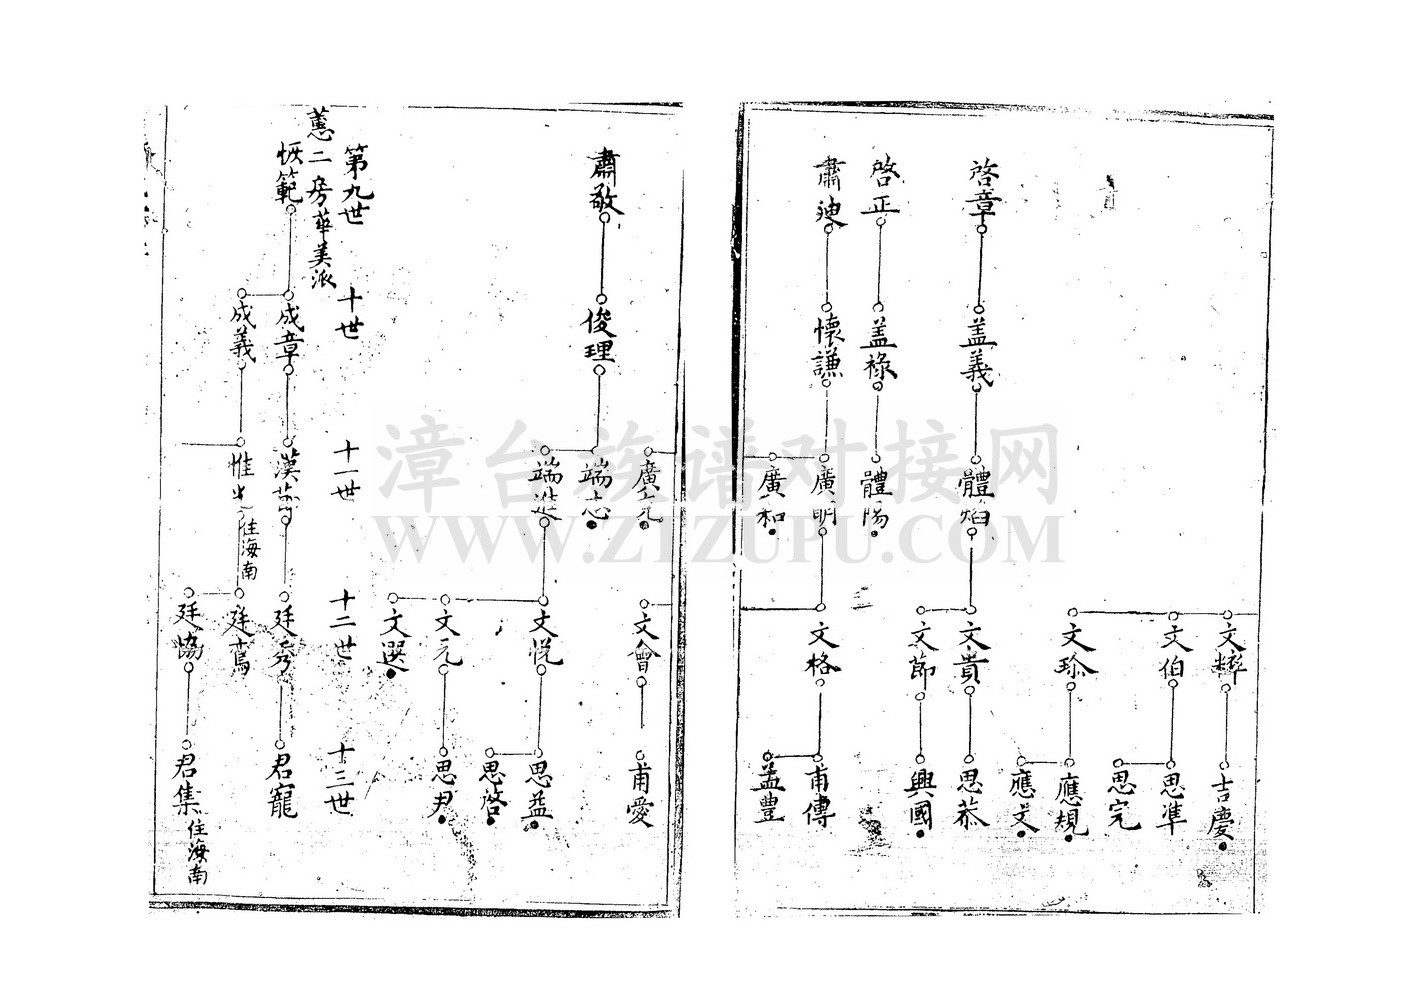 啓章
啓正
肅迪
盖義
盖祿
懷謙
體焰
體陽
廣明
廣和
文粹
文伯
文珍
文貴
文節
文格
吉慶
思準
思完
應規
應文
思恭
興國
甫傳
孟豐
肅敬
俊理
廣元
端志
端進
文會
文悦
文元
文選
甫愛
思益
思啓
思尹
第九世
十世
十一世
十二世
十三世
蕙二房華美派
恢範
成章
成義
漢
惟
住海南
廷秀
廷鳶
廷協
君寵
君集 住海南
漳台族谱对接网
WWW.ZTZUPU.COM